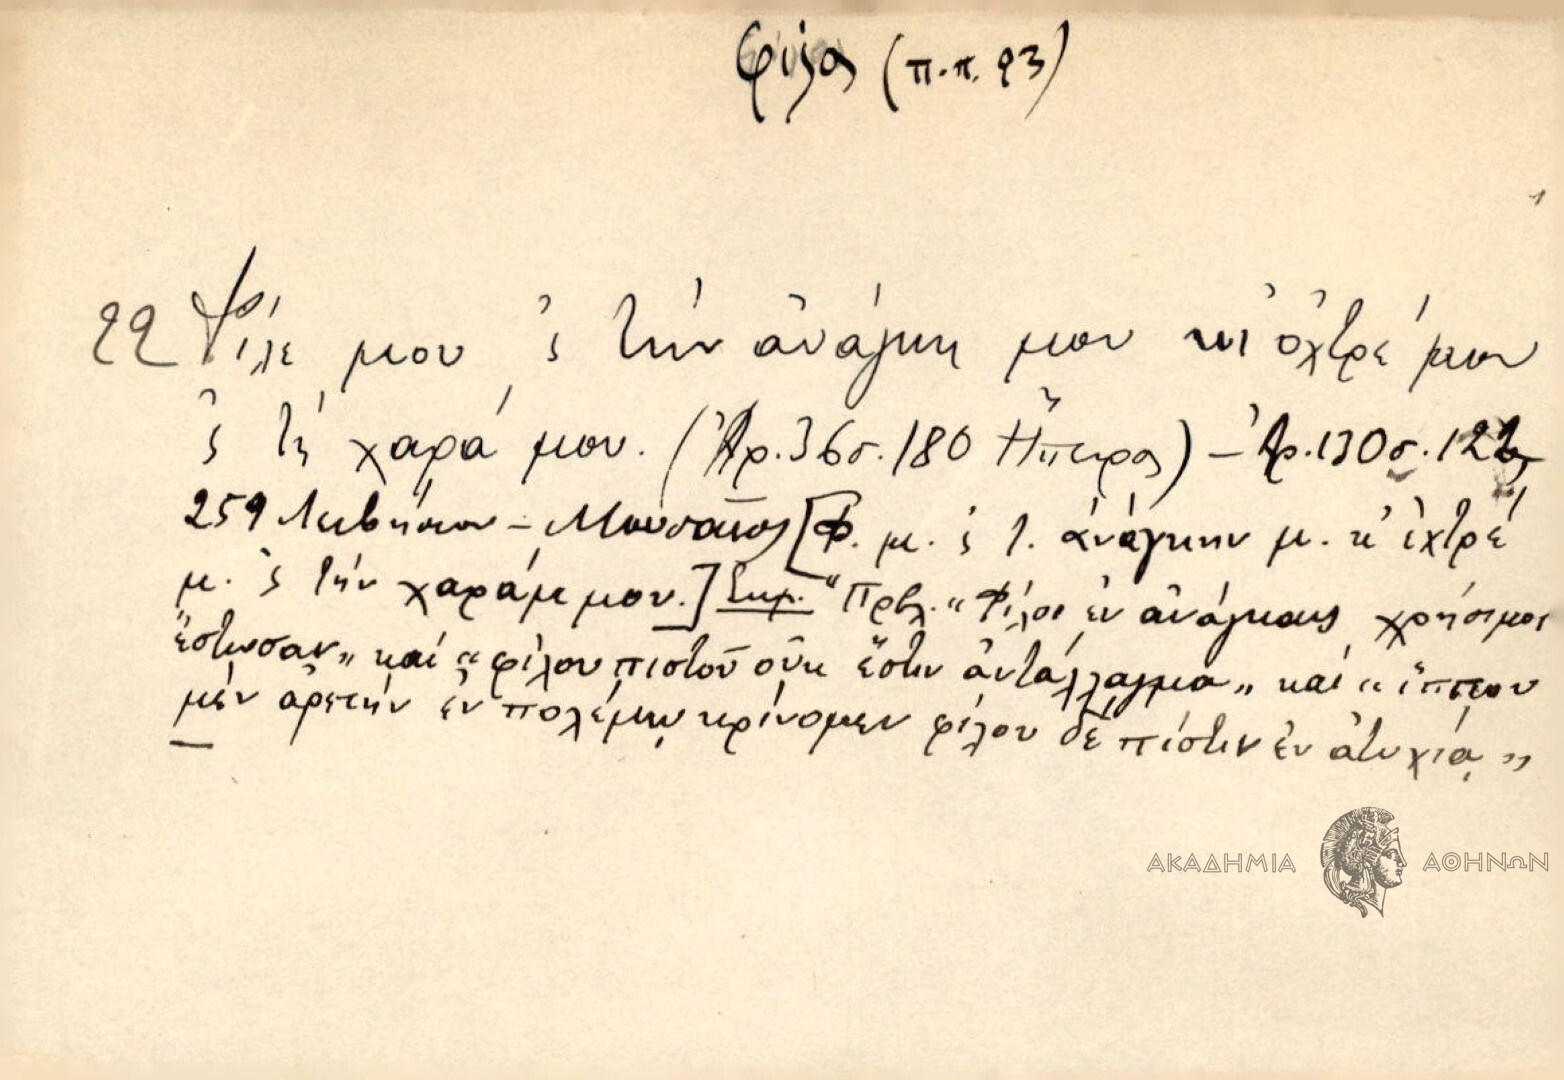 φίλος (π.π. 93)
22 Φίλε μου 'ς τὴν ἀνάγκη μου κι ὀχτρέ μου
'ς τὴ χαρά μου. (Ἀρ. 36 σ. 180 Ἤπειρος) – Ἀρ. 130 σ. 122,
259 Λειβήσιον – Μουσαῖος [Φ. μ. 'ς τ. ἀνάγκην μ. κ' ἐχτρέ
μ. 'ς τὴν χαράμ μου.] Σημ. "Πρβλ. "Φίλοι ἐν ἀνάγκαις χρήσιμοι
ἔστωσαν" καί "φίλου πιστοῦ οὐκ ἔστιν ἀντάλλαγμα" καί "ἵππου
μὲν ἀρετὴν ἐν πολέμῳ κρίνομεν φίλου δὲ πίστιν ἐν ἀτυχίᾳ"
ΑΚΑΔΗΜΙΑ ΑΘΗΝΩΝ